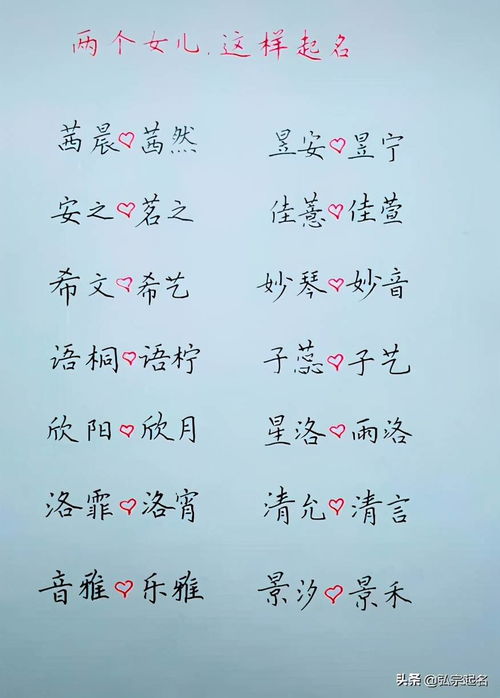 两个女儿.这样起名
茜晨♡茜然 昱安♡昱宁
安之♡茗之 佳薏♡佳萱
希文♡希艺 妙琴♡妙音
语桐♡语柠 子蕊♡子艺
欣阳♡欣月 星洛♡雨洛
洛霏♡洛宵 清允♡清言
音雅♡乐雅 景汐♡景禾
头条 @弘宗起名